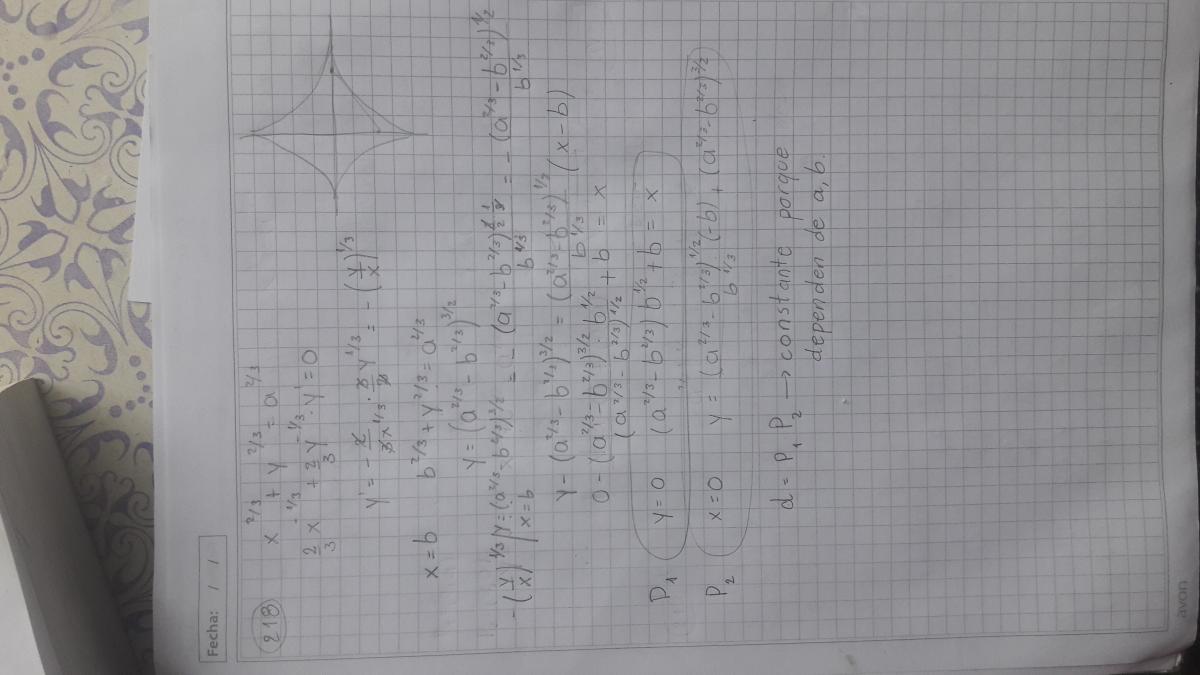 Fecha: / /
218
x^{2/3} + y^{2/3} = a^{2/3}
2/3 x^{-1/3} + 2/3 y^{-1/3} · y' = 0
y' = - 2/(3x^{1/3}) · 3/2 y^{1/3} = - (y/x)^{1/3}
x = b    b^{2/3} + y^{2/3} = a^{2/3}
y = (a^{2/3} - b^{2/3})^{3/2}
-(y/x)^{1/3} | y = (a^{2/3} - b^{2/3})^{3/2}, x = b = - (a^{2/3} - b^{2/3})^{3/2 · 1/3} / b^{1/3} = - (a^{2/3} - b^{2/3})^{1/2} / b^{1/3}
y - (a^{2/3} - b^{2/3})^{3/2} = (a^{2/3} - b^{2/3})^{1/2} / b^{1/3} (x - b)
0 - (a^{2/3} - b^{2/3})^{3/2} · b^{1/2} / (a^{2/3} - b^{2/3})^{1/2} + b = x
P_1 y = 0 (a^{2/3} - b^{2/3}) b^{1/2} + b = x
P_2 x = 0 y = (a^{2/3} - b^{2/3})^{1/2} / b^{1/3} (-b) + (a^{2/3} - b^{2/3})^{3/2}
d = P_1 P_2 → constante porque
dependen de a, b.
avon